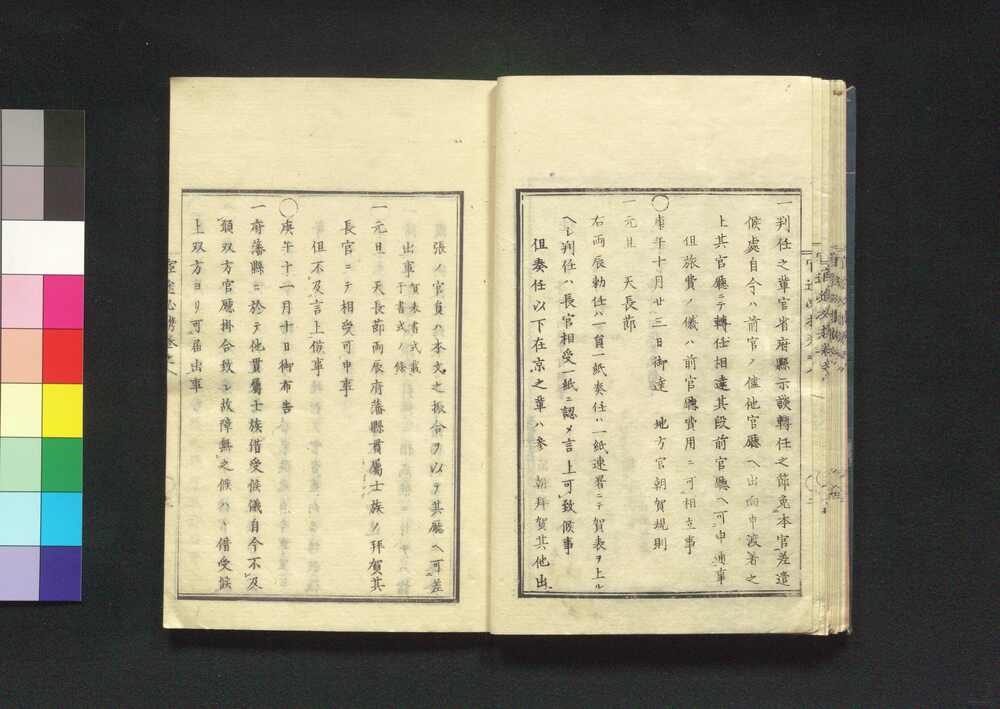 一判任之輩官省府縣示談轉任之節免本官差遣
候處自今ハ前官ノ儘他官廳ヘ出向申渡着之
上其官廳ニテ轉任相達其段前官廳ヘ可申通事
但旅費ノ儀ハ前官廳費用ニ可相立事
○庚午十月廿三日御達 地方官朝賀規則
一元旦 天長節
右両辰勅任ハ一員一紙奏任ハ一紙連署ニテ賀表ヲ上ル
ヘシ判任ハ長官相受一紙ニ認メ言上可致候事
但奏任以下在京之輩ハ参 朝拜賀其他出
張ノ官員ハ本文之振合ヲ以テ其廳ヘ可差
出事 賀表書式載于書式ノ條
一元旦 天長節両辰府藩縣貫屬士族ノ拜賀其
長官ニテ相受可申事
但不及言上候事
○庚午十一月十日御布告
一府藩縣ニ於テ他貫屬士族借受候儀自今不及
願双方官廳掛合致シ故障無之候ハヽ借受候
上双方ヨリ可届出事